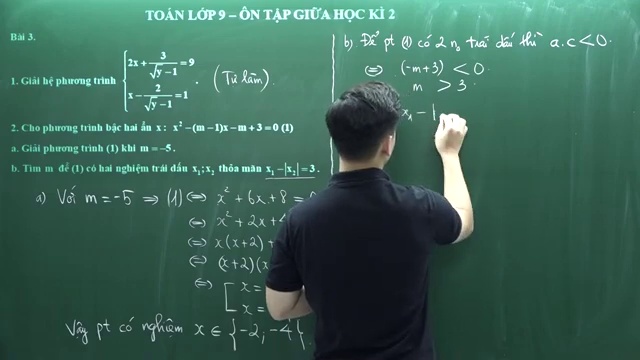 TOÁN LỚP 9 – ÔN TẬP GIỮA HỌC KÌ 2
Bài 3.
1. Giải hệ phương trình { 2x + 3/√(y−1) = 9
x − 2/√(y−1) = 1 . (Tự làm).
2. Cho phương trình bậc hai ẩn x : x² − (m−1)x − m + 3 = 0 (1)
a. Giải phương trình (1) khi m = −5.
b. Tìm m để (1) có hai nghiệm trái dấu x₁; x₂ thỏa mãn x₁ − |x₂| = 3 .
a) Với m = −5 ⇒ (1) ⇔ x² + 6x + 8 =
⇔ x² + 2x + 4
⇔ x(x+2) +
⇔ (x+2)(x
⇔ [ x =
x =
Vậy pt có nghiệm x ∈ {−2; −4}
b) Để pt (1) có 2 n₀ trái dấu thì a.c < 0.
⇔ (−m+3) < 0.
m > 3.
x₁ − |